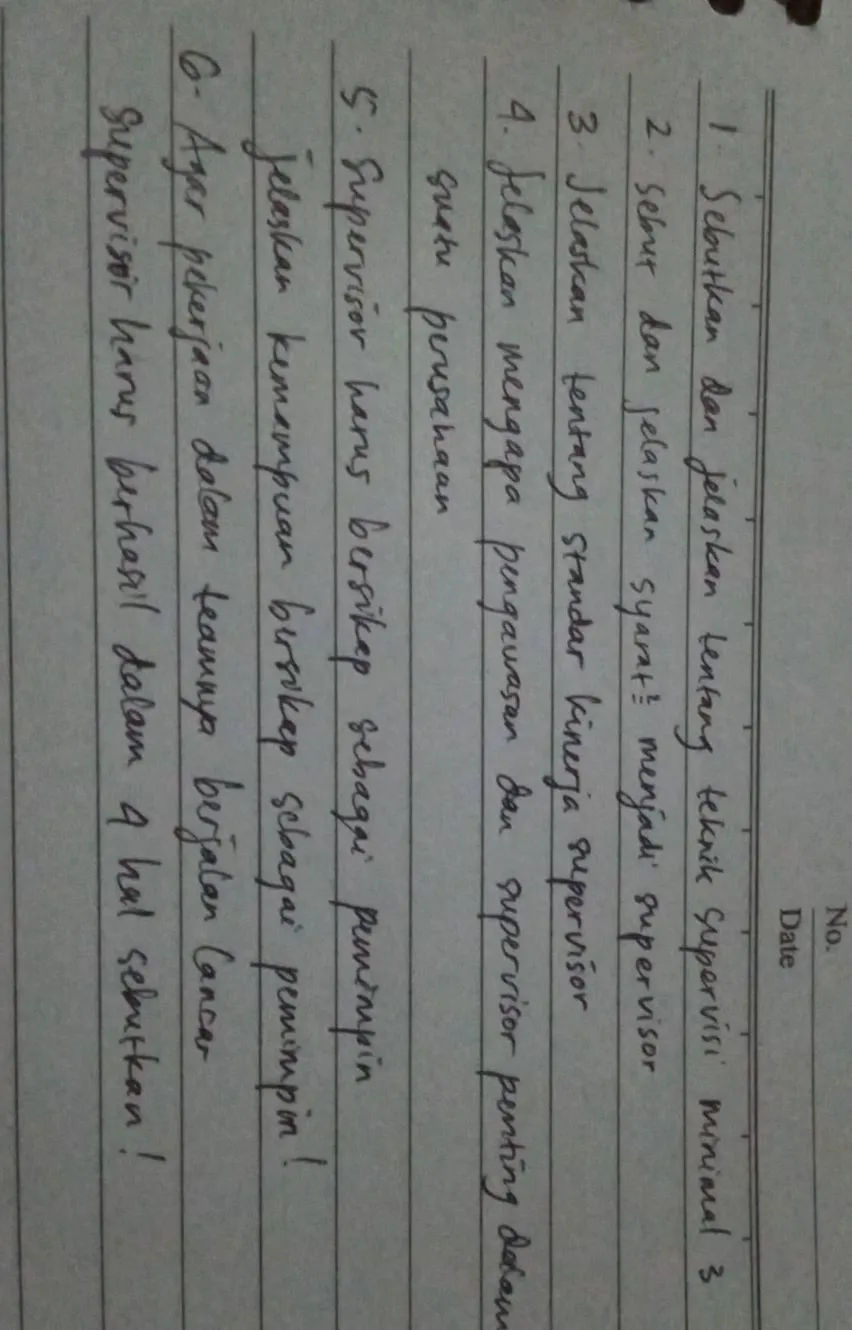 No.
Date
1. Sebutkan dan jelaskan tentang teknik supervisi minimal 3
2. sebut dan jelaskan syarat² menjadi supervisor
3. Jelaskan tentang standar kinerja supervisor
4. Jelaskan mengapa pengawasan dan supervisor penting dalam
suatu perusahaan
5. Supervisor harus bersikap sebagai pemimpin
jelaskan kemampuan bersikap sebagai pemimpin!
6. Agar pekerjaan dalam teamnya berjalan lancar
supervisor harus berhasil dalam 4 hal sebutkan!